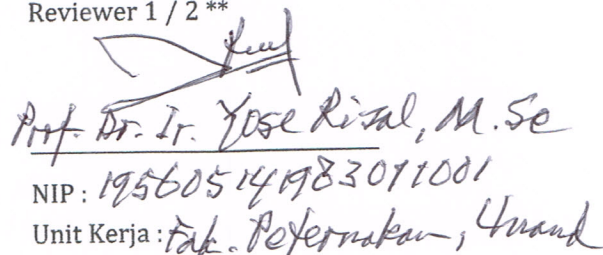 Reviewer 1 / 2 **
Prof. Dr. Ir. Yose Rizal, M.Sc
NIP : 195605141983011001
Unit Kerja : Fak. Peternakan, Unand